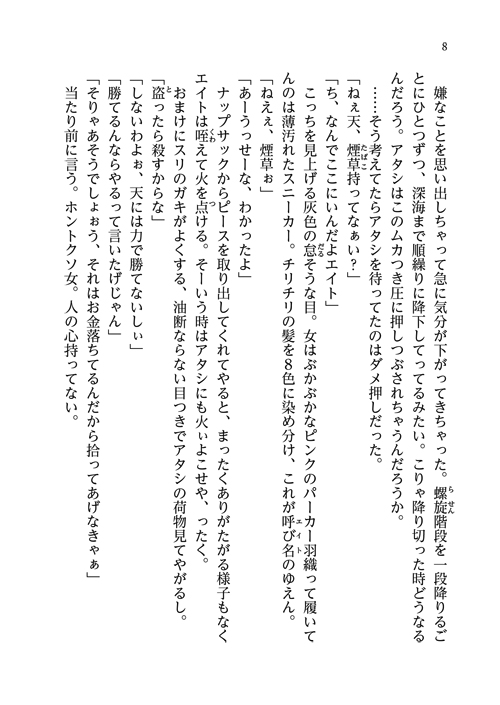 8
嫌なことを思い出しちゃって急に気分が下がってきちゃった。螺旋階段を一段降りるご
とにひとつずつ、深海まで順繰りに降下してってるみたい。こりゃ降り切った時どうなる
んだろう。アタシはこのムカつき圧に押しつぶされちゃうんだろうか。
……そう考えてたらアタシを待ってたのはダメ押しだった。
「ねぇ天、煙草持ってなぁい？」
「ち、なんでここにいんだよエイト」
こっちを見上げる灰色の怠そうな目。女はぶかぶかなピンクのパーカー羽織って履いて
んのは薄汚れたスニーカー。チリチリの髪を８色に染め分け、これが呼び名のゆえん。
「ねえぇ、煙草ぉ」
「あーうっせーな、わかったよ」
ナップサックからピースを取り出してくれてやると、まったくありがたがる様子もなく
エイトは咥えて火を点ける。そーいう時はアタシにも火ぃよこせや、ったく。
おまけにスリのガキがよくする、油断ならない目つきでアタシの荷物見てやがるし。
「盗ったら殺すからな」
「しないわよぉ、天には力で勝てないしぃ」
「勝てるんならやるって言いたげじゃん」
「そりゃあそうでしょぉう、それはお金落ちてるんだから拾ってあげなきゃぁ」
当たり前に言う。ホントクソ女。人の心持ってない。